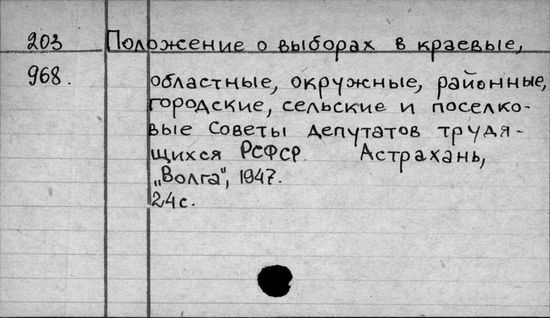 203 Положение о выборах в краевые,
968. областные, окружные, районные,
городские, сельские и поселко-
вые Советы депутатов трудя-
щихся РСФСР. Астрахань,
„Волга", 1947.
24с.